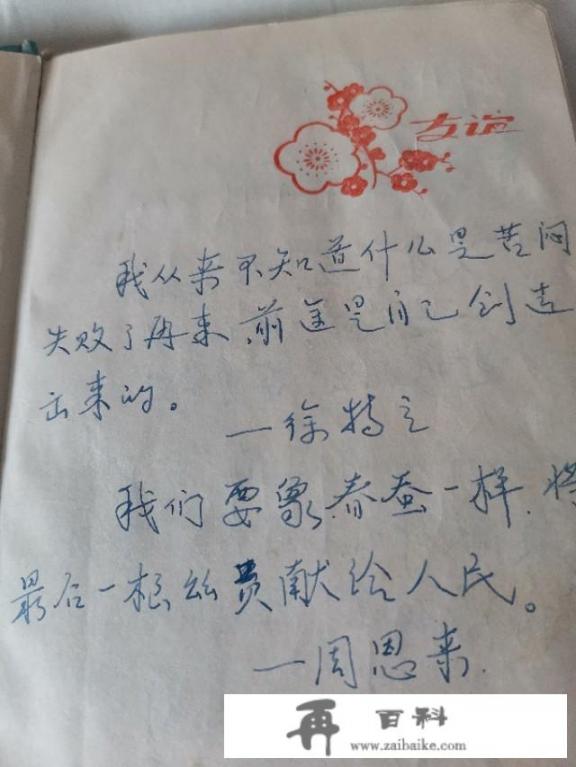 友谊
我从来不知道什么是苦闷
失败了再来前途是自己创造
出来的。
—徐特立
我们要象春蚕一样.将
最后一根丝贡献给人民。
—周恩来.
再百科
www.zaibaike.com